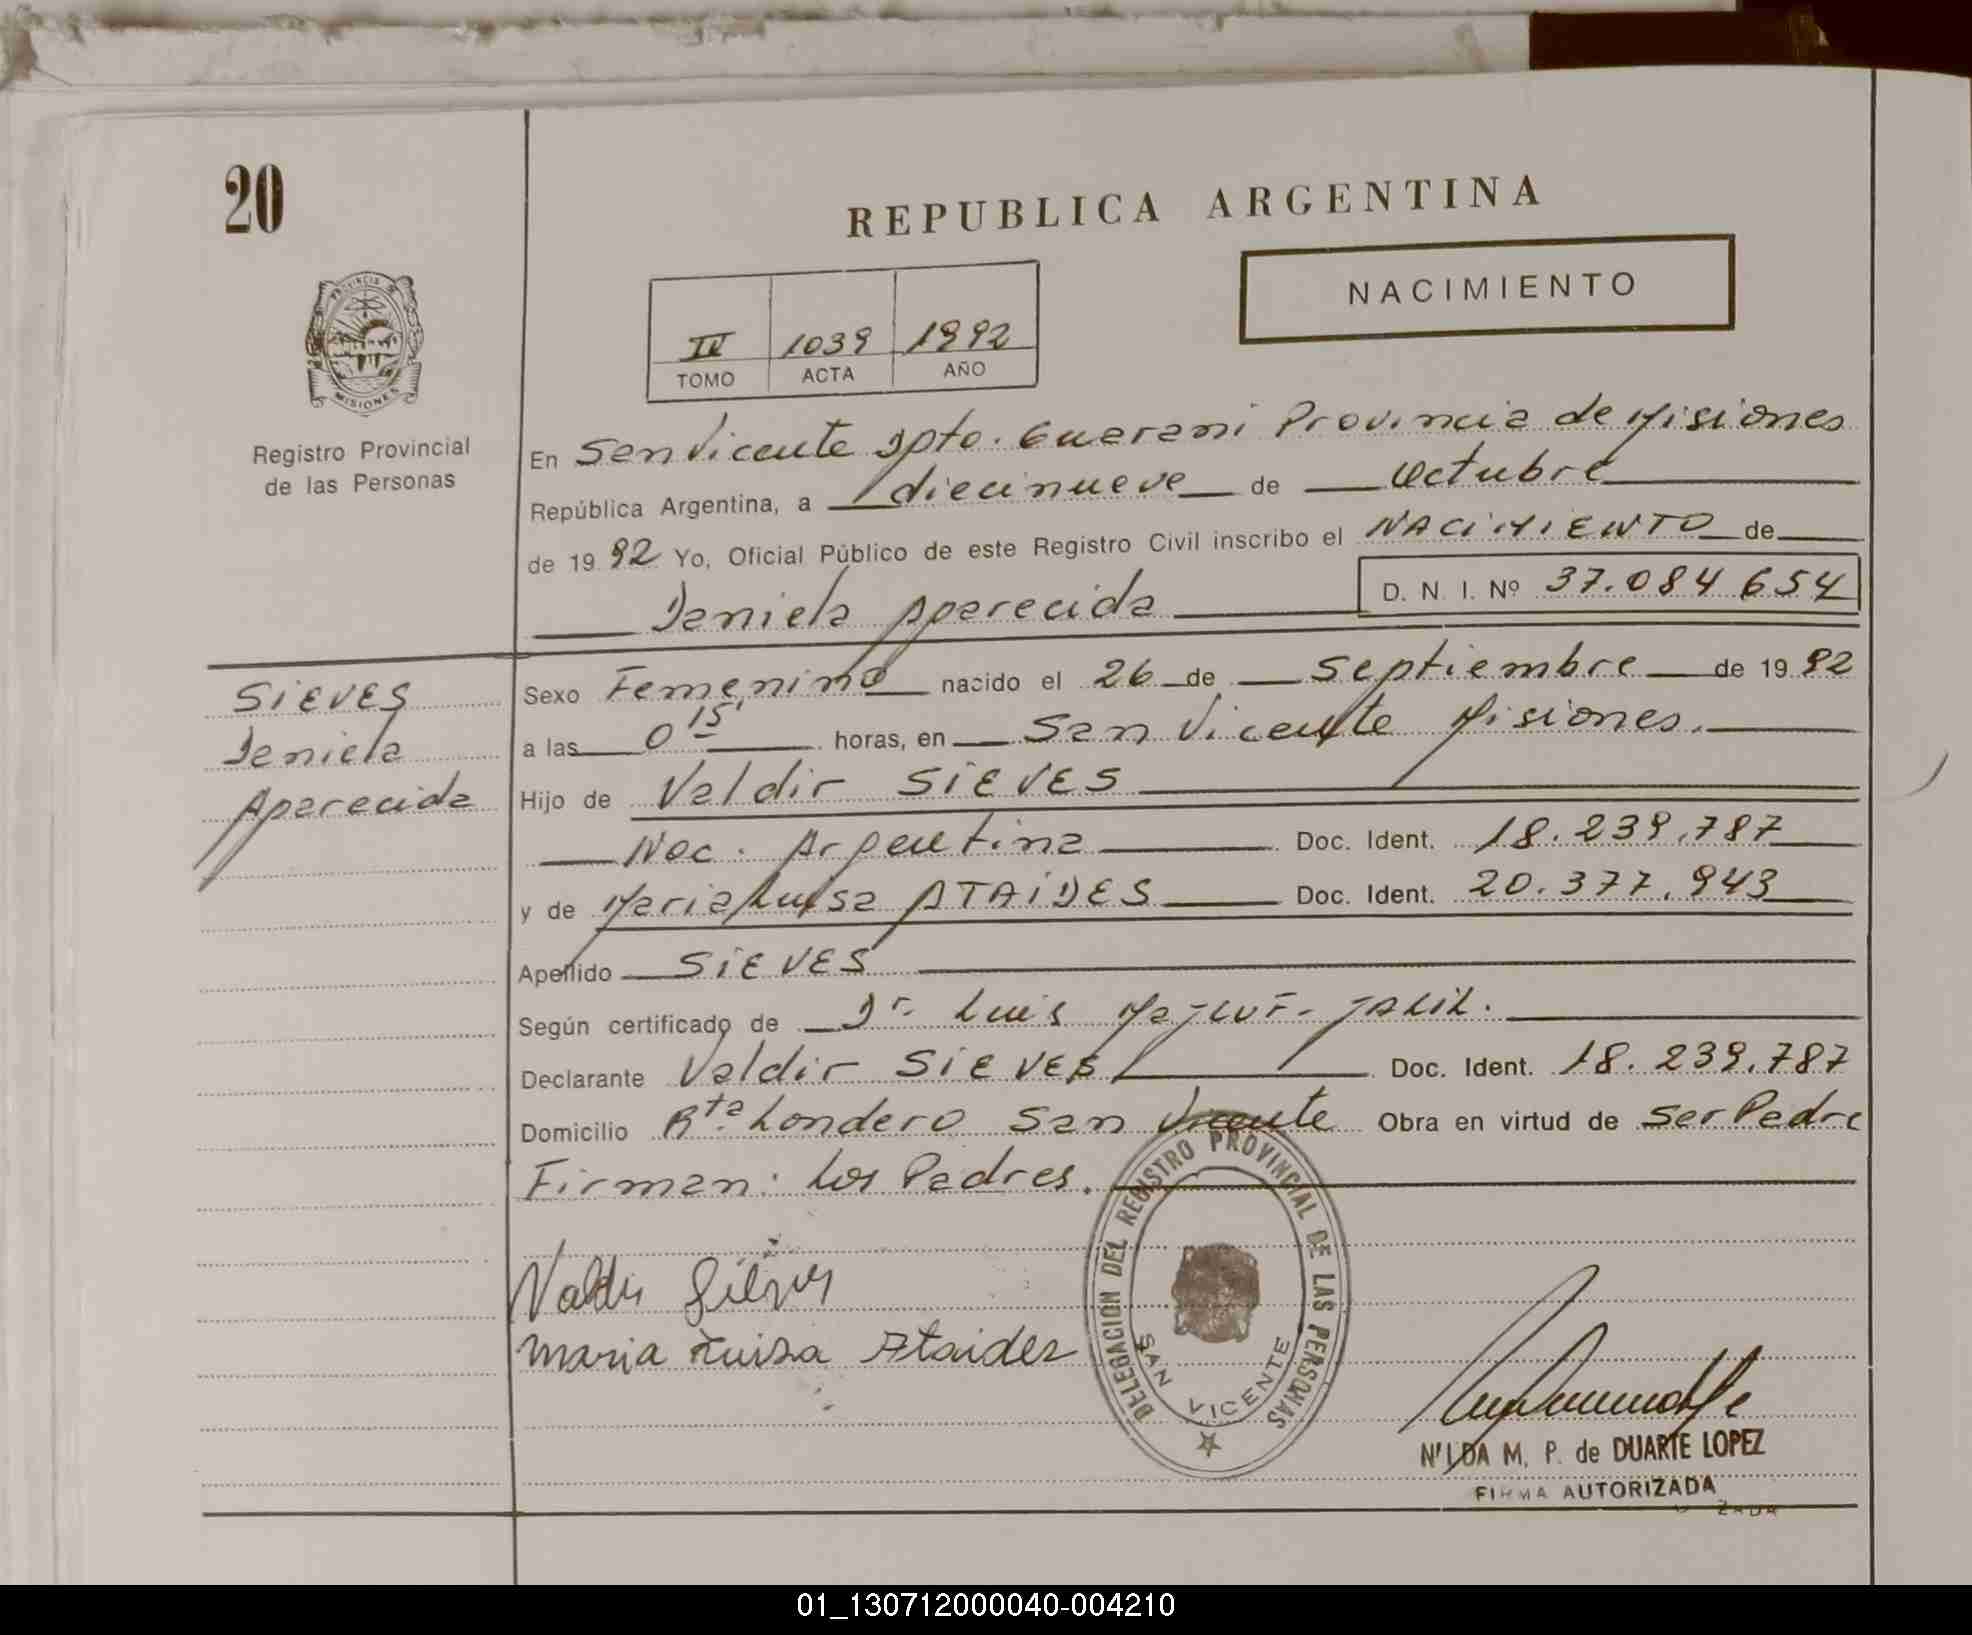 20
REPUBLICA ARGENTINA
NACIMIENTO
PROVINCIA DE
MISIONES
IV 1039 1992
TOMO ACTA AÑO
Registro Provincial
de las Personas
En San Vicente Dpto. Guarani Provincia de Misiones
República Argentina, a diecinueve de Octubre
de 1992 Yo, Oficial Público de este Registro Civil inscribo el NACIMIENTO de
Daniela Aparecida D. N. I. Nº 37.084 654
SIEVES
Daniela
Aparecida
Sexo Femenino nacido el 26 de Septiembre de 1992
a las 0 15' horas, en San Vicente Misiones.
Hijo de Valdir SIEVES
Nac. Argentina Doc. Ident. 18.239.787
y de Maria Luisa ATAIDES Doc. Ident. 20.377.943
Apellido SIEVES
Según certificado de Dr. Luis JALIL.
Declarante Valdir SIEVES Doc. Ident. 18.239.787
Domicilio Rta. Londero San Vicente Obra en virtud de ser Padre
Firman: Los Padres.
Valdir Sieves
Maria Luisa Ataides
DELEGACION DEL REGISTRO PROVINCIAL DE LAS PERSONAS
SAN VICENTE
NILDA M. P. de DUARTE LOPEZ
FIRMA AUTORIZADA
01_130712000040-004210